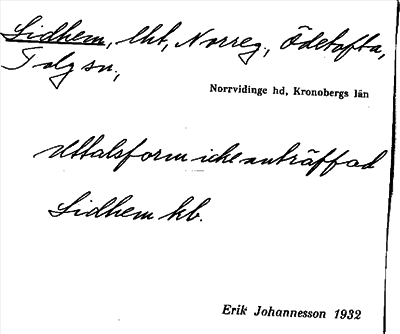 Lidhem, lht, Norreg., Ödetofta,
Tolg sn,
Norrvidinge hd, Kronobergs län
Uttalsform icke anträffad
Lidhem kb.
Erik Johannesson 1932